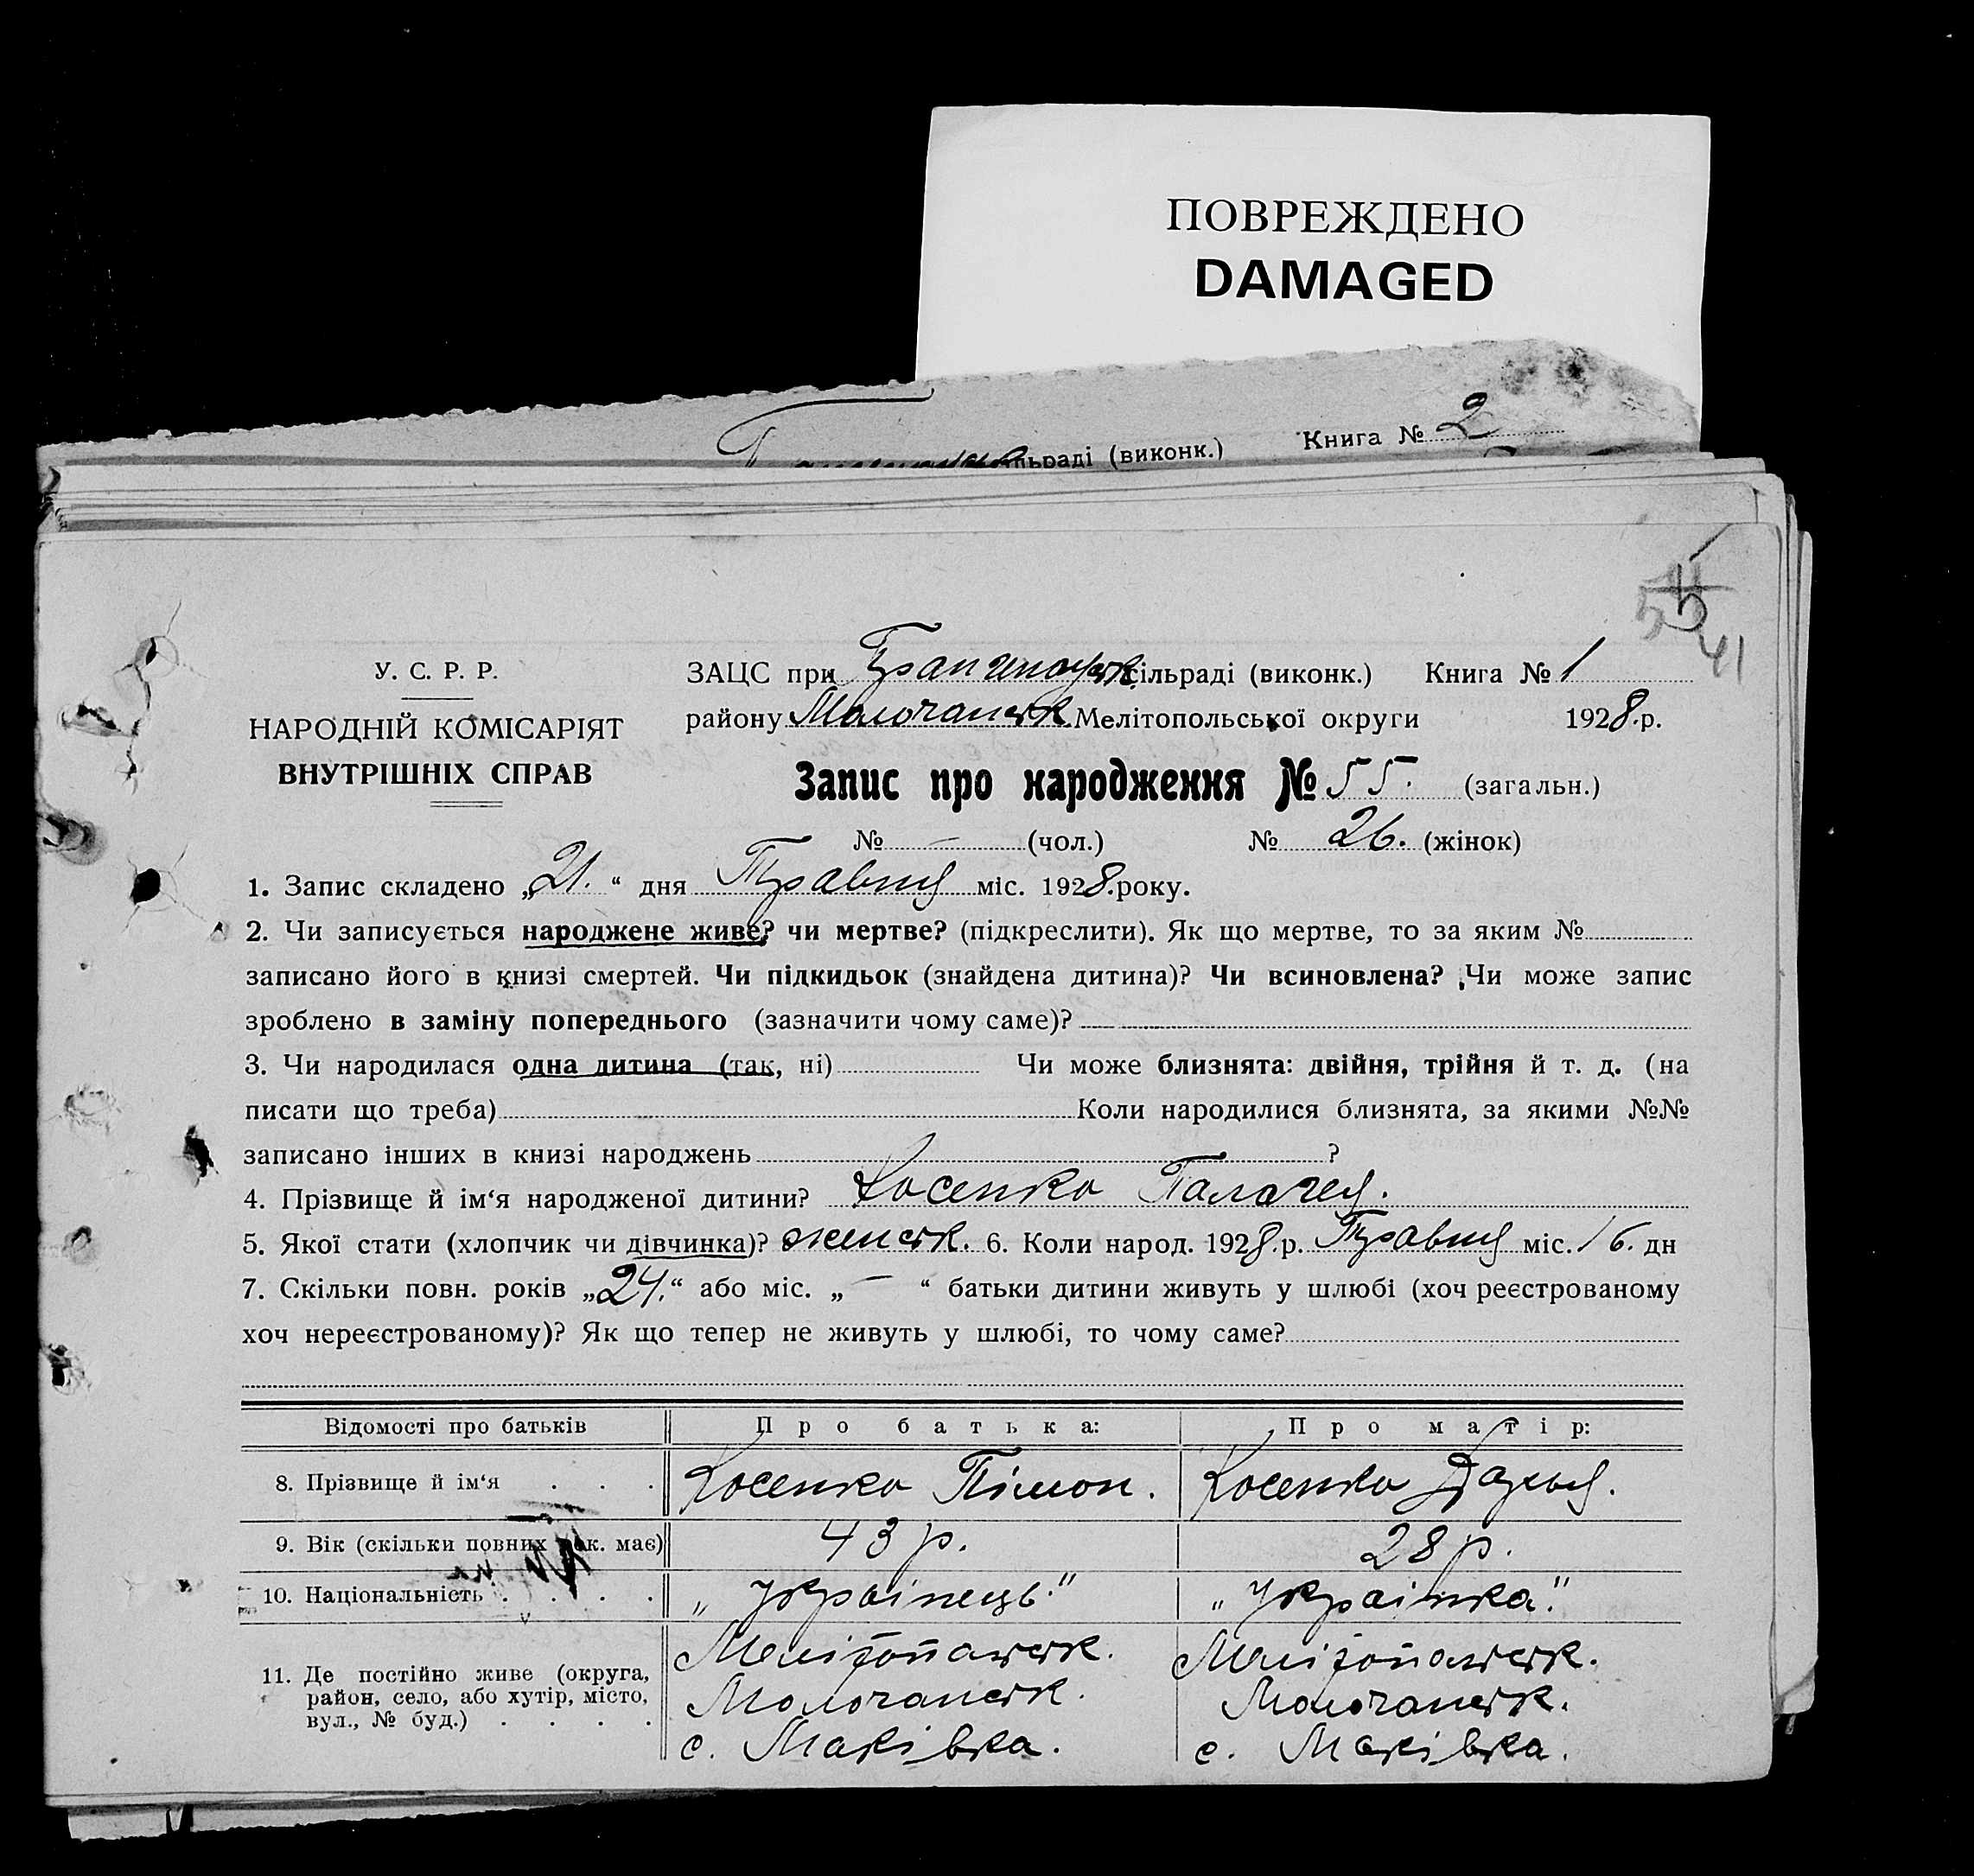 ПОВРЕЖДЕНО
DAMAGED
сільраді (виконк.) Книга № 2
55
41
У. С. Р. Р.
НАРОДНІЙ КОМІСАРІЯТ
ВНУТРІШНІХ СПРАВ
ЗАЦС при сільраді (виконк.) Книга № 1
району Молочанськ. Мелітопольської округи 1928.р.
Запис про народження № 55. (загальн.)
№ — (чол.) № 26. (жінок)
1. Запис складено „21.“ дня Травня міс. 1928.року.
2. Чи записується народжене живе? чи мертве? (підкреслити). Як що мертве, то за яким №
записано його в книзі смертей. Чи підкидьок (знайдена дитина)? Чи всиновлена? Чи може запис
зроблено в заміну попереднього (зазначити чому саме)?
3. Чи народилася одна дитина (так, ні) Чи може близнята: двійня, трійня й т. д. (на
писати що треба) Коли народилися близнята, за якими №№
записано інших в книзі народжень ?
4. Прізвище й ім‘я народженої дитини? Косенко Палагея.
5. Якої стати (хлопчик чи дівчинка)? женськ. 6. Коли народ. 1928.р. Травня міс. 16. дн
7. Скільки повн. років „24.“ або міс. „—“ батьки дитини живуть у шлюбі (хоч реєстрованому
хоч нереєстрованому)? Як що тепер не живуть у шлюбі, то чому саме?
Відомості про батьків Про батька: Про матір:
8. Прізвище й ім‘я . . . Косенко Пімон. Косенко Дарья.
9. Вік (скільки повних рок. має) 43 р. 28 р.
10. Національність . . . . „Українець“ „Українка“.
11. Де постійно живе (округа, район, село, або хутір, місто, вул., № буд.) . . . .
Мелітопольськ. Мелітопольськ.
Молочанськ. Молочанськ.
с. Маківка. с. Маківка.